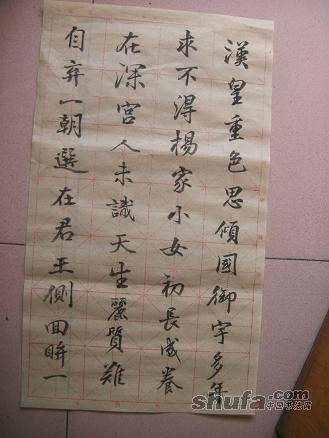 漢皇重色思傾國御宇多年
求不得楊家小女初長成養
在深宮人未識天生麗質難
自弃一朝選在君王側回眸一
shufa.com
中国书法网